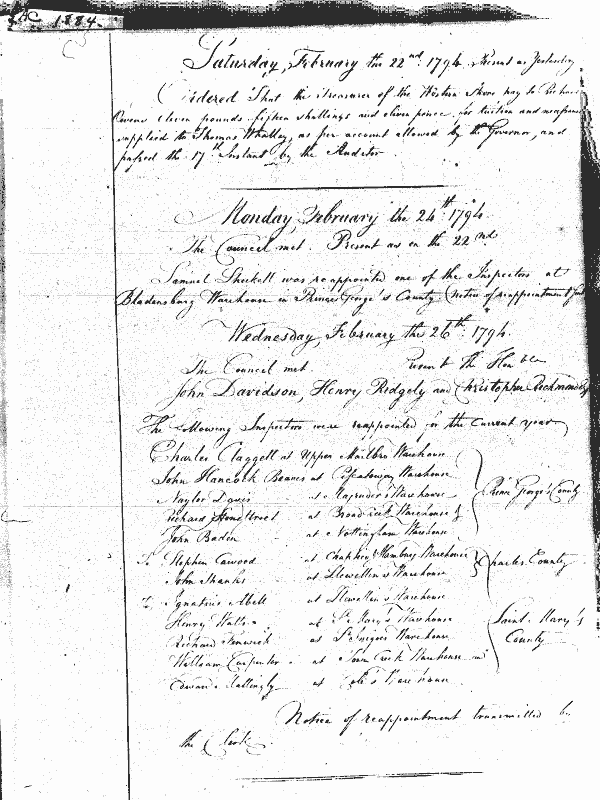 1884.
Saturday, February the 22nd 1794. Present as Yesterday
Ordered That the Treasurer of the Western Shore pay to Richard
Owens eleven pounds fifteen shillings and eleven pence for tuition and
supplied to Thomas Whitley, as per account allowed by the Governor, and
passed the 17th Instant by the Auditor
Monday, February the 24th 1794.
The Council met. Present as on the 22nd
Samuel Shekell was reappointed one of the Inspectors at
Bladensburg Warehouse in Prince George's County (notice of reappointment
Wednesday, February the 26th 1794.
The Council met. Present the Honble
John Davidson, Henry Ridgely and Christopher Richmond
The following Inspectors were reappointed for the Current year
Charles Claggett at Upper Marlbro Warehouse
John Hancock Beanes at Piscataway Warehouse
Naylor Davis at Magruder's Warehouse
Prince George's County
Richard at Broad Creek Warehouse &
John Baden at Nottingham Warehouse
Stephen Cawood at Chaptico & Hamburg Warehouse
Charles County
John Shanks at Llewellen's Warehouse
Ignatius Abell at Llewellen's Warehouse
Henry Watts at St Mary's Warehouse
Saint Mary's
County
Richard Fenwick at St Inigoes Warehouse
William Carpenter at Town Creek Warehouse and
Edward Mattingly at Cole's Warehouse
Notice of reappointment transmitted by
the Clerk.